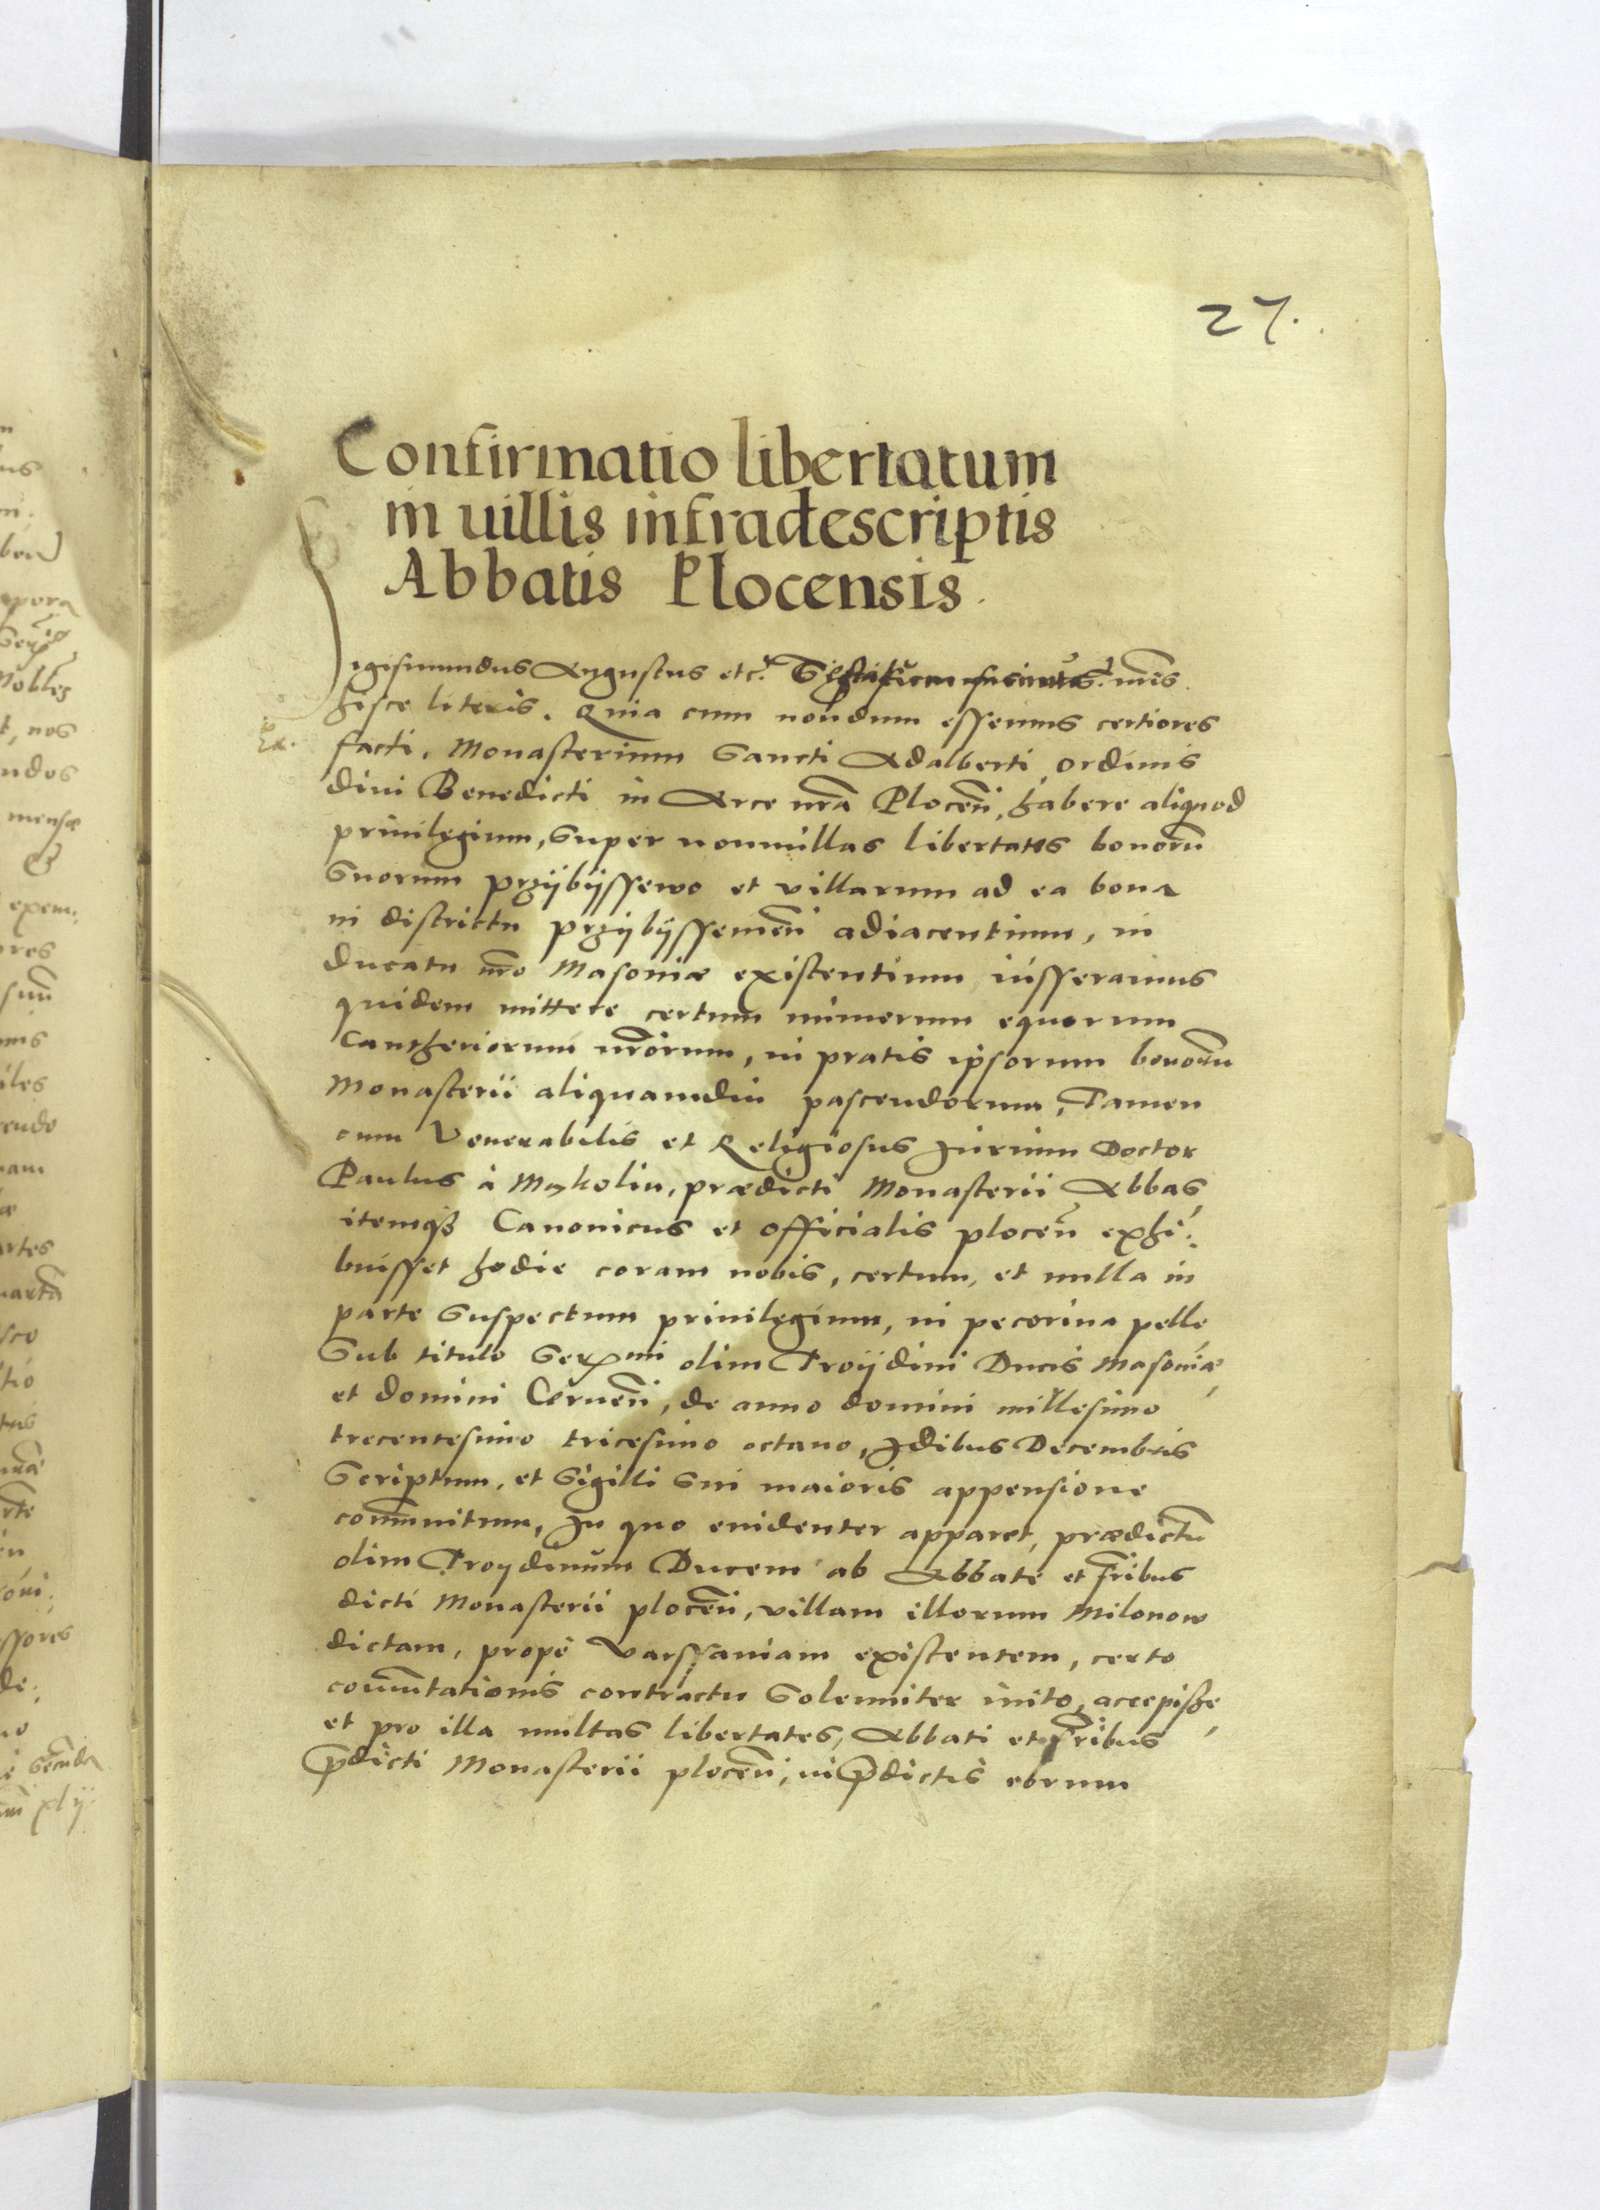 27.
Confirmatio libertatum
in uillis infradescriptis
Abbatis Plocensis.
Sigismundus Augustus etc. nris
hisce literis. Quia cum nondum essemus certiores
facti, Monasterium Sancti Adalberti, Ordinis
diui Benedicti in Arce nrã Plocen̄, habere aliquod
priuilegium, Super nonnullas libertates bonorũ
Suorum przijbijssewo et villarum ad ea bona
in districtu przijbijsseuien̄ adiacentium, in
ducatu nr̃o Masouiæ existentium iusseramus
quidem mittere certum numerum equorum
Cantheriorum nr̃orum, in pratis ipsorum bonorũ
Monasterii aliquamdiu pascendorum, Tamen
cum Venerabilis et Religiosus Iurium Doctor
Paulus à Mykolin, prædicti Monasterii Abbas,
itemqꝫ Canonicus et officialis plocen̄ exhi:
buisset hodie coram nobis, certum, et nulla in
parte Suspectum priuilegium, in pecorina pelle,
Sub titulo olim Troijdini Ducis Masouiæ,
et domini Cernen̄, de anno domini millesimo
trecentesimo tricesimo octauo, Idibus Decembris
Scriptum, et Sigilli Sui maioris appensione
com̄unitum, In quo euidenter apparet, prædictũ
olim Troydinum Ducem ab Abbate et fr̃ibus
dicti Monasterii plocen̄, villam illorum Milonow
dictam, propè Varssauiam existentem, certo
com̄utationis contractu Solenniter inito, accepisse,
et pro illa multas libertates, Abbati et fr̃ibus
p̃dicti Monasterii plocen̄, in p̃dictis eorum